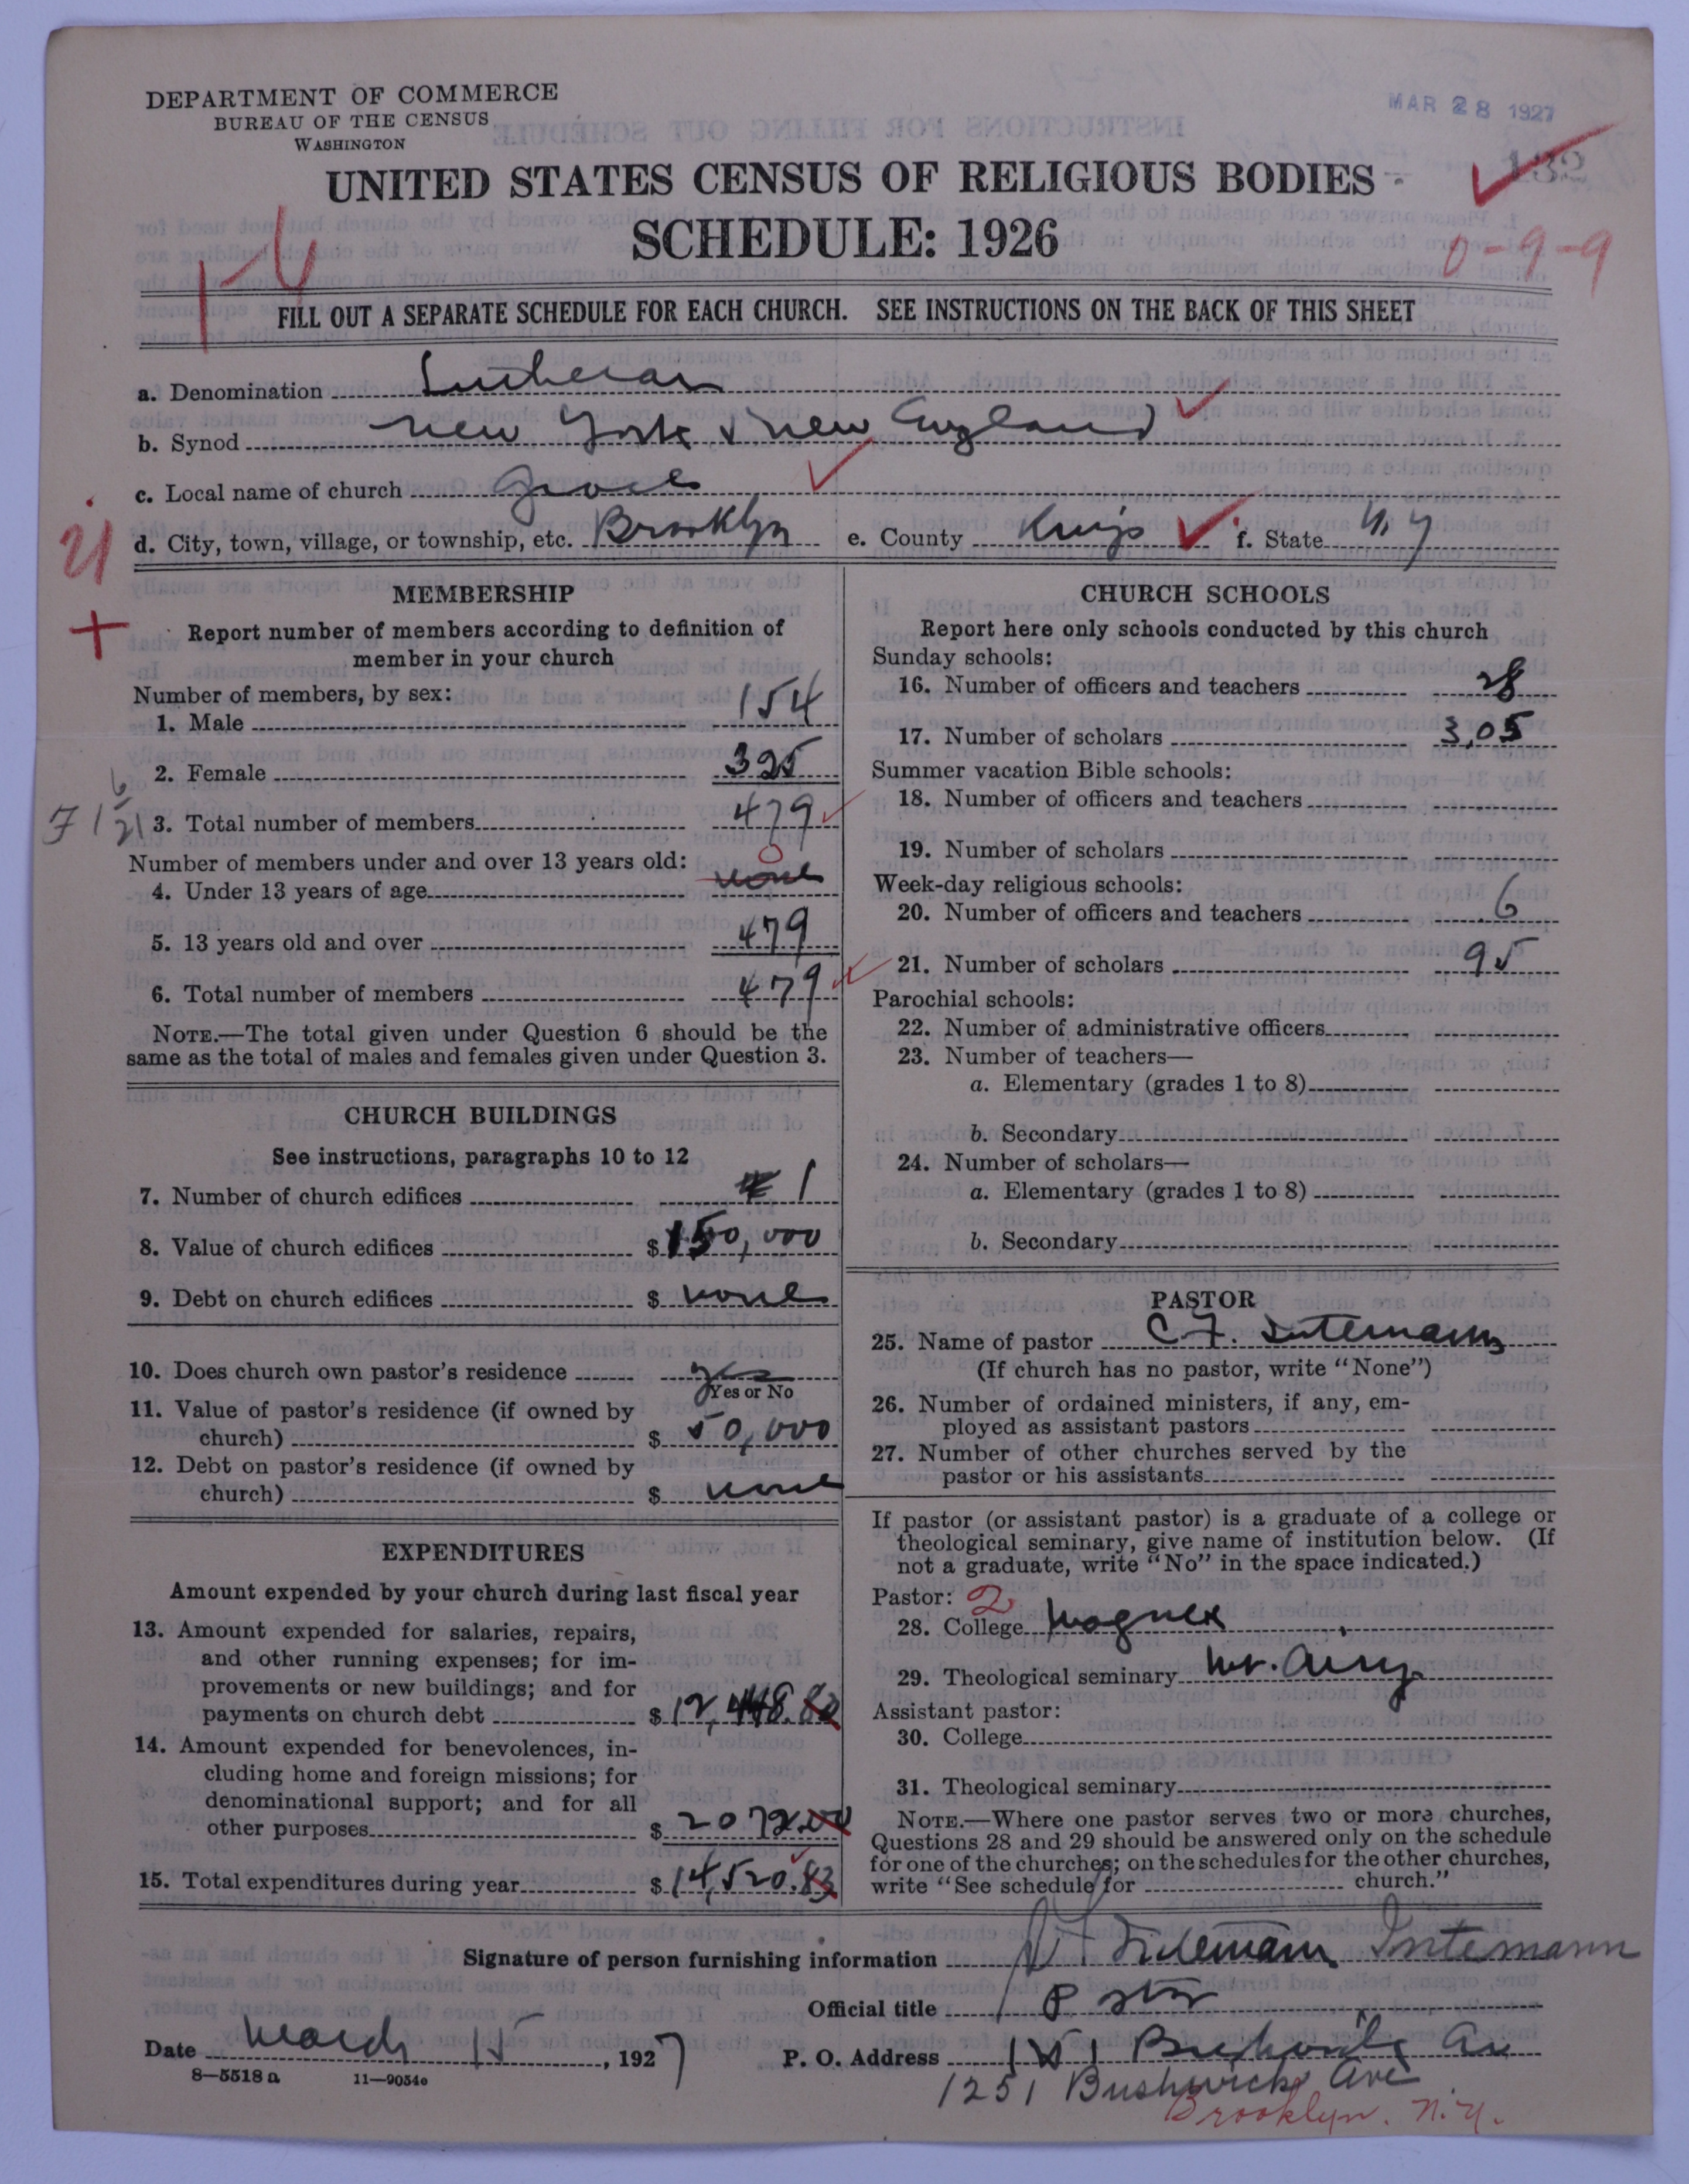 DEPARTMENT OF COMMERCE
BUREAU OF THE CENSUS
WASHINGTON
MAR 28 1927
132
UNITED STATES CENSUS OF RELIGIOUS BODIES
SCHEDULE: 1926
0-9-9
FILL OUT A SEPARATE SCHEDULE FOR EACH CHURCH. SEE INSTRUCTIONS ON THE BACK OF THIS SHEET
a. Denomination Lutheran
b. Synod New York & New England
c. Local name of church Grace
d. City, town, village, or township, etc. Brooklyn e. County Kings f. State N Y
MEMBERSHIP
Report number of members according to definition of
member in your church
Number of members, by sex:
1. Male 154
2. Female 325
3. Total number of members 479
Number of members under and over 13 years old:
0
4. Under 13 years of age none
5. 13 years old and over 479
6. Total number of members 479
NOTE.—The total given under Question 6 should be the
same as the total of males and females given under Question 3.
CHURCH BUILDINGS
See instructions, paragraphs 10 to 12
7. Number of church edifices 1
8. Value of church edifices $150,000
9. Debt on church edifices $ none
10. Does church own pastor's residence yes
Yes or No
11. Value of pastor's residence (if owned by
church) $ 50,000
12. Debt on pastor's residence (if owned by
church) $ none
EXPENDITURES
Amount expended by your church during last fiscal year
13. Amount expended for salaries, repairs,
and other running expenses; for im-
provements or new buildings; and for
payments on church debt $ 12,448.83
14. Amount expended for benevolences, in-
cluding home and foreign missions; for
denominational support; and for all
other purposes $ 2072.00
15. Total expenditures during year $ 14,520.83
CHURCH SCHOOLS
Report here only schools conducted by this church
Sunday schools:
16. Number of officers and teachers 28
17. Number of scholars 3,05
Summer vacation Bible schools:
18. Number of officers and teachers
19. Number of scholars
Week-day religious schools:
20. Number of officers and teachers 6
21. Number of scholars 95
Parochial schools:
22. Number of administrative officers
23. Number of teachers—
a. Elementary (grades 1 to 8)
b. Secondary
24. Number of scholars—
a. Elementary (grades 1 to 8)
b. Secondary
PASTOR
25. Name of pastor C. F. Intemann
(If church has no pastor, write "None")
26. Number of ordained ministers, if any, em-
ployed as assistant pastors
27. Number of other churches served by the
pastor or his assistants
If pastor (or assistant pastor) is a graduate of a college or
theological seminary, give name of institution below. (If
not a graduate, write "No" in the space indicated.)
Pastor: 2
28. College Wagner
29. Theological seminary Mt. Airy
Assistant pastor:
30. College
31. Theological seminary
NOTE.—Where one pastor serves two or more churches,
Questions 28 and 29 should be answered only on the schedule
for one of the churches; on the schedules for the other churches,
write "See schedule for church."
Signature of person furnishing information Intemann Intemann
Official title Pastor
Date March 15, 1927 P. O. Address 1251 Bushwick Av
1251 Bushwick Ave
Brooklyn. N.Y.
8—5518 a 11—9054c